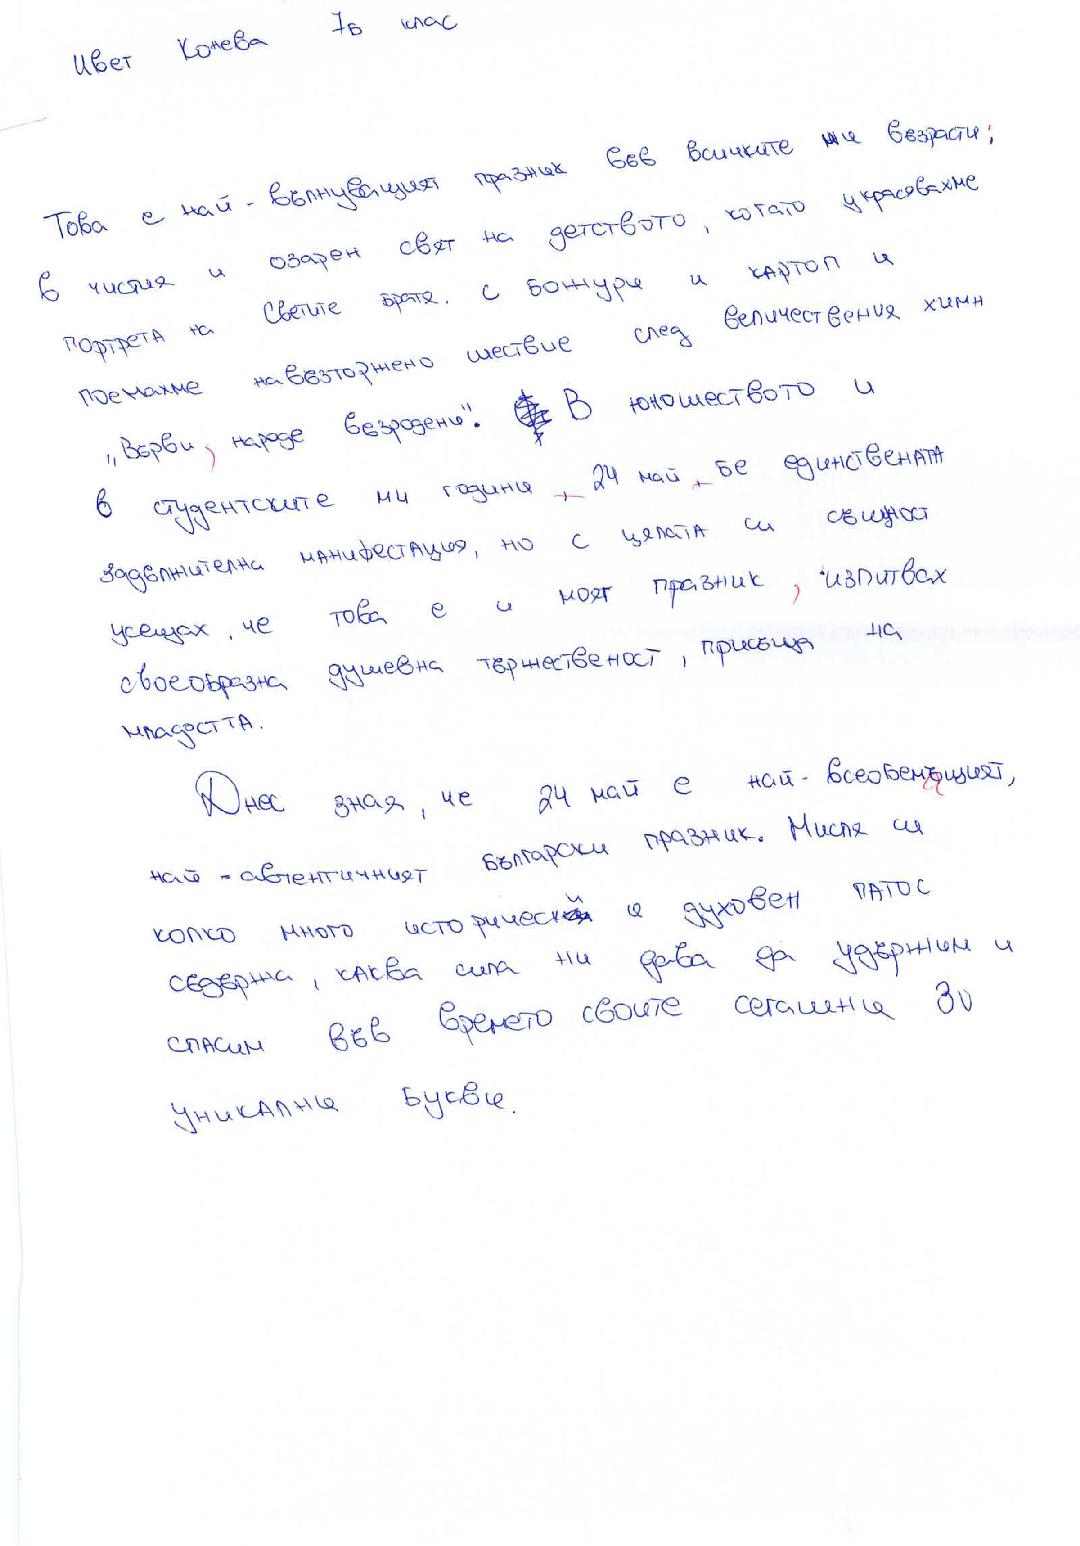 Цвет Конева 7б клас
Това е най-вълнуващият празник във всичките ми възрасти;
в чистия и озарен свят на детството, когато украсявахме
портрета на Светите братя. с божури и картоп и
поемахме навъзторжено шествие след величествения химн
„Върви, народе възродени". В юношеството и
в студентските ми години, 24 май, бе единствената
задължителна манифестация, но с цялата си същност
усещах, че това е и моят празник, изпитвах
своеобразна душевна тържественост, присъща на
младостта.
Днес зная, че 24 май е най-всеобемащият,
най-автентичният български празник. Мисля си
колко много исторически и духовен патос
съдържа, каква сила ни дава да удържим и
спасим във времето своите сегашни 30
уникални букви.